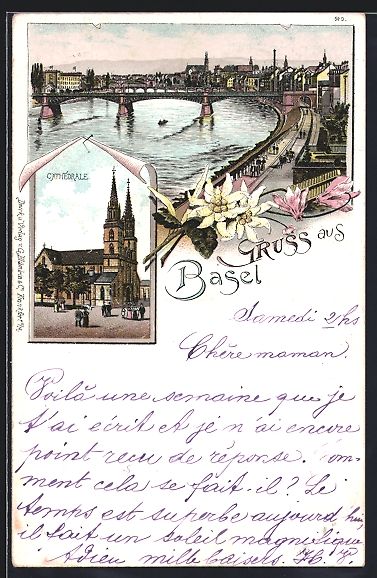 CATHÉDRALE
GRUSS aus
Basel
Samedi 2 hs
Chère maman.
Voilà une semaine que je
t'ai écrit et je n'ai encore
point recu de réponse. Com-
ment cela se fait-il? Le
temps est superbe aujourd'hui
il fait un soleil magnifique
Adieu mille baisers.